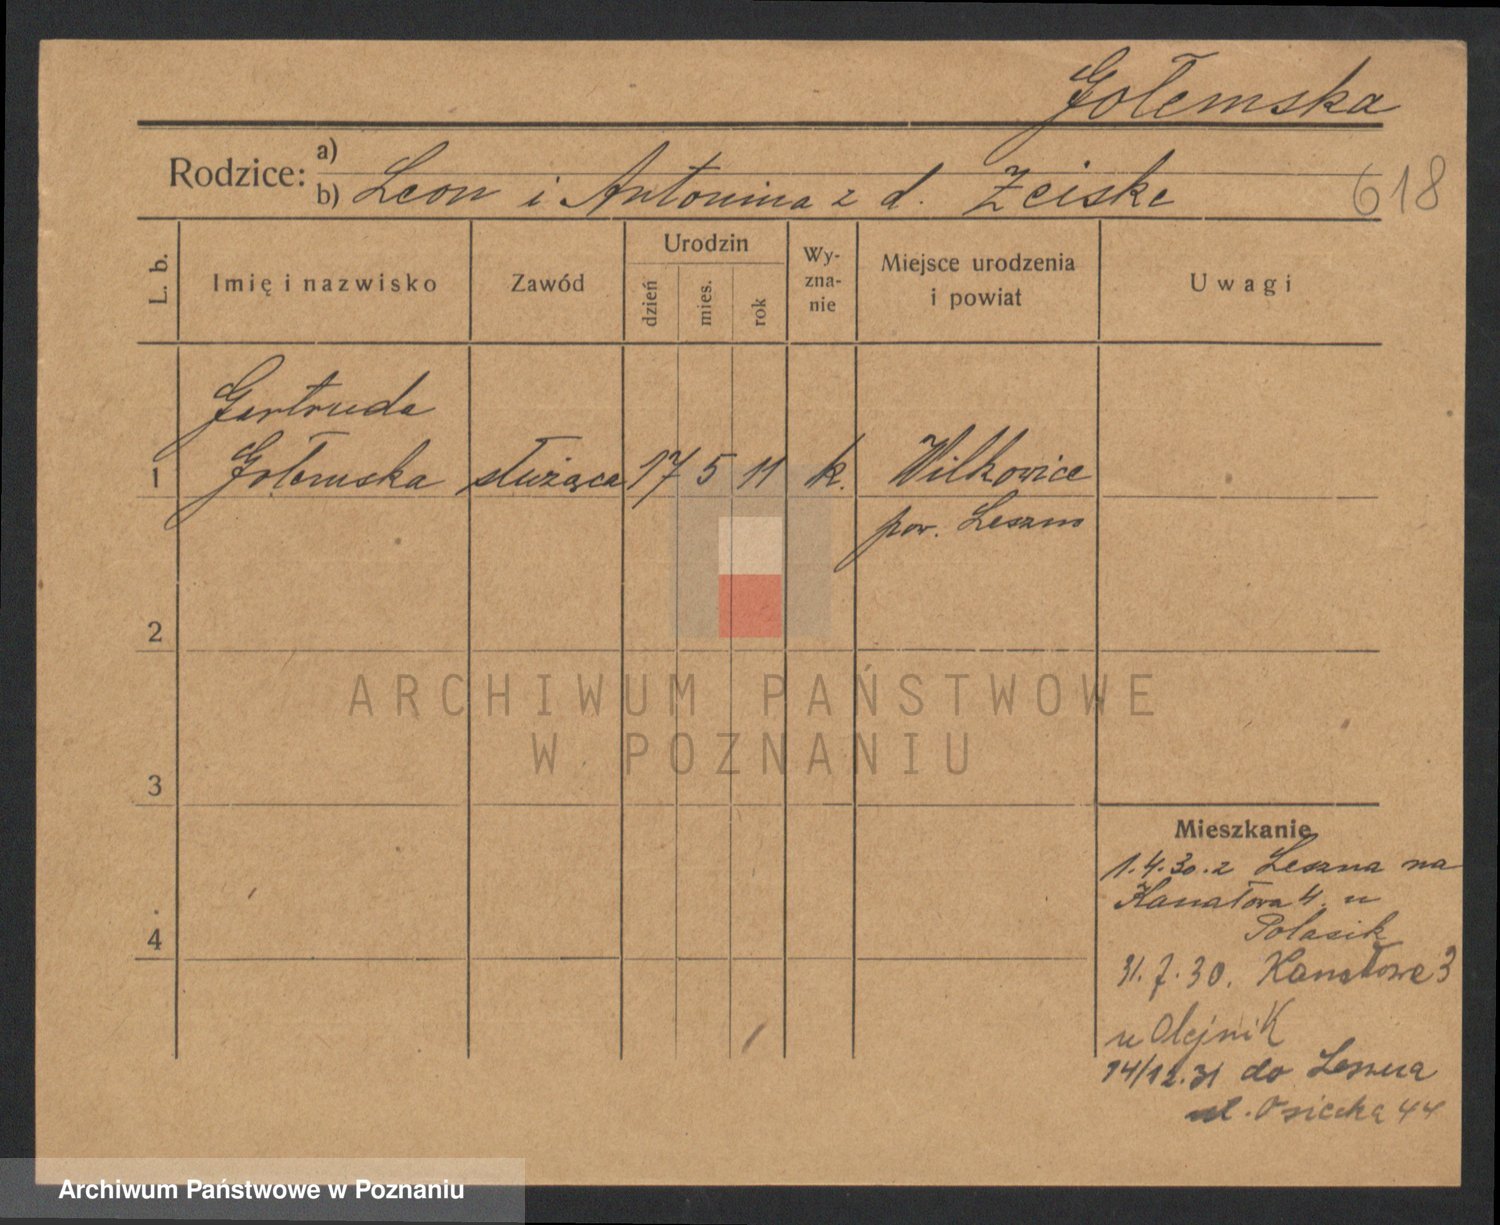 Gołemska
Rodzice: a)
b) Leon i Antonina z d. Zeiske
618
L. b.
Imię i nazwisko
Zawód
Urodzin
dzień
mies.
rok
Wy-
zna-
nie
Miejsce urodzenia
i powiat
Uwagi
Gertruda
1 Gołemska służąca 17 5 11 k. Wilkowice
pow. Leszno
2
ARCHIWUM PAŃSTWOWE
W POZNANIU
3
Mieszkanie
1.4.30. z Leszna na
Kanałowa 4. u
Polasik
4
31.7.30. Kanałowa 3
u Olejnik
14/12.31 do Leszna
ul. Osiecka 44
Archiwum Państwowe w Poznaniu